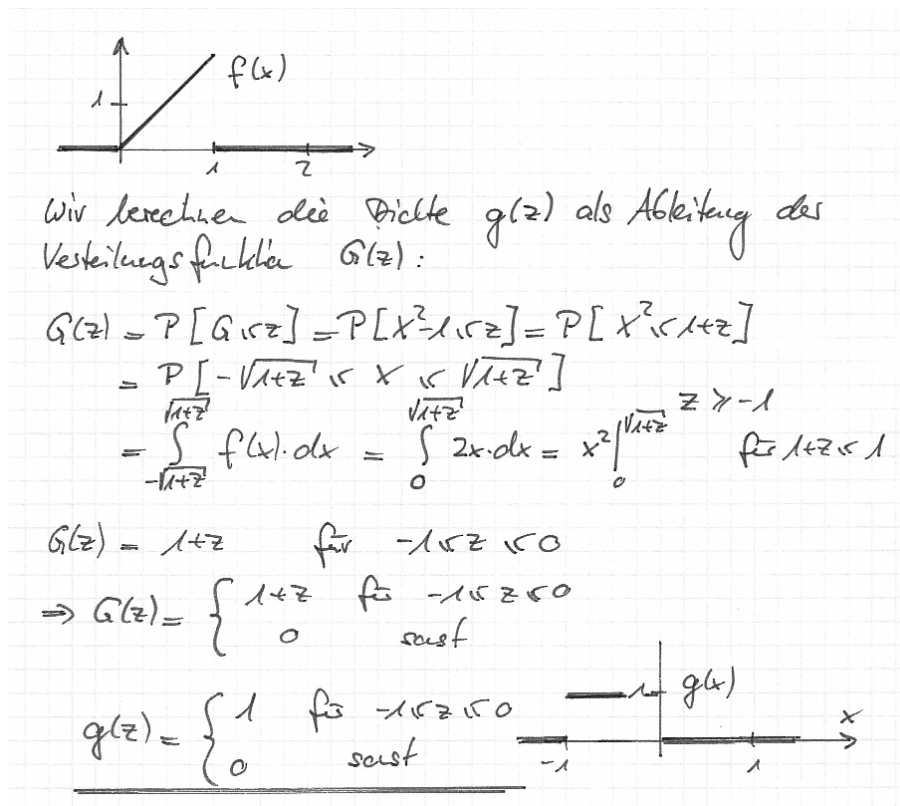 f(x)
1
1 2
Wir berechnen die Dichte g(z) als Ableitung der
Verteilungsfunktion G(z):
G(z) = P[G ≤ z] = P[X²-1 ≤ z] = P[X² ≤ 1+z]
= P[-√(1+z) ≤ X ≤ √(1+z)] z ≥ -1
= ∫_{-√(1+z)}^{√(1+z)} f(x)·dx = ∫_0^{√(1+z)} 2x·dx = x²|_0^{√(1+z)} für 1+z ≤ 1
G(z) = 1+z für -1 ≤ z ≤ 0
⇒ G(z) = { 1+z für -1 ≤ z ≤ 0
0 sonst
1 g(x)
g(z) = { 1 für -1 ≤ z ≤ 0
0 sonst
x
-1 1